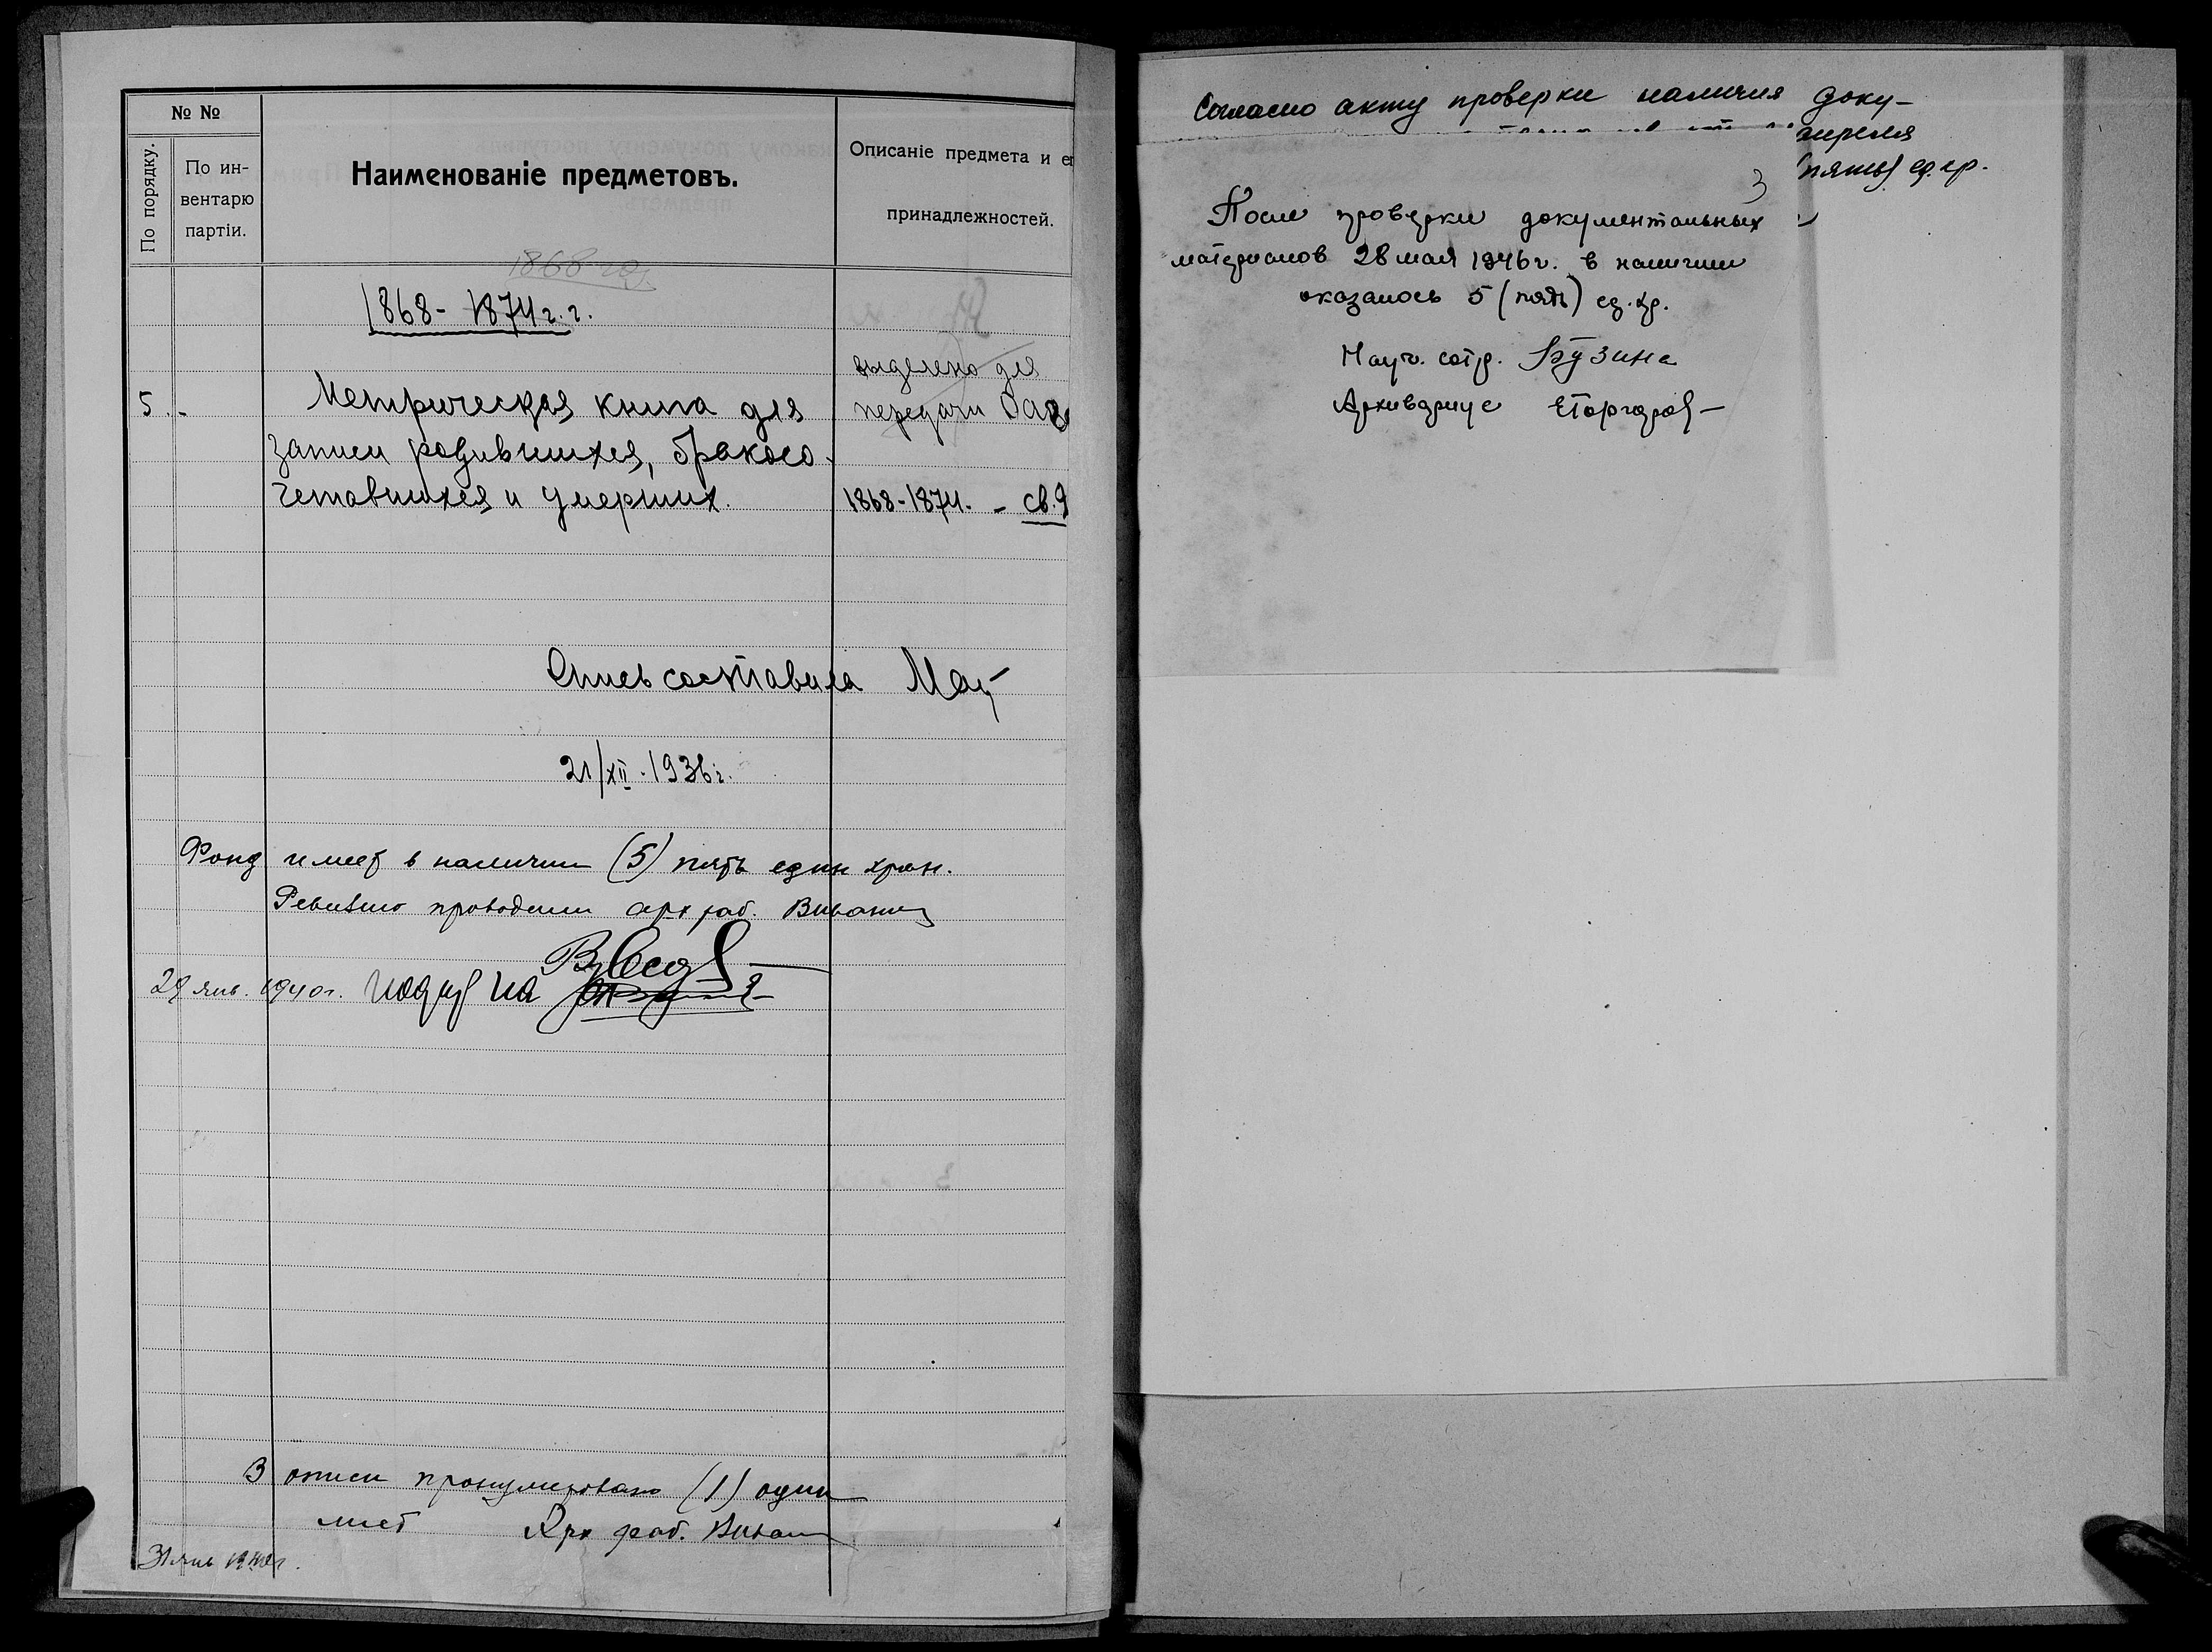 № №
По порядку.
По ин-
вентарю
партіи.
Наименованіе предметовъ.
Описаніе предмета и ег
принадлежностей.
1868 год
1868 - 1874 г.г.
выделено для
передачи
5. -
Метрическая книга для
записи родившихся, бракосо-
четавшихся и умерших.
1868-1874. - св. 9
Опись составила
21/XII. 1936 г.
Фонд имеет в наличии (5) пять един хран.
Ревизию проводили арх раб.
29 янв. 1940 г.
В описи пронумеровано (1) один
лист Арх раб.
31 янв 1940 г.
Согласно акту проверки наличия доку-
апреля
(пять) ед. хр.
3
После проверки документальных
материалов 28 мая 1946 г. в наличии
оказалось 5 (пять) ед. хр.
Науч. сотр. Бузина
Архивариус